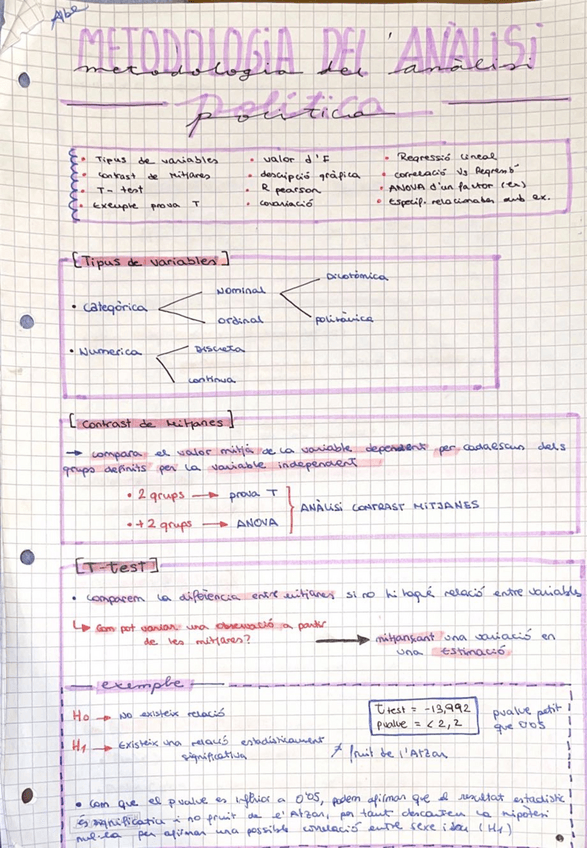 Abe
METODOLOGIA DEL ANÀLISI
metodologia del anàlisi
política
• Tipus de variables
• contrast de mitjanes
• T-test
• Exemple prova T
• valor d'F
• descripció gràfica
• R pearson
• covariació
• Regressió lineal
• correlació Vs Regressió
• ANOVA d'un factor
• Especif. relacionades amb ex.
[Tipus de variables]
• Categòrica
Nominal
Dicotòmica
politòmica
ordinal
• Numerica
Discreta
continua
[contrast de Mitjanes]
→ compara el valor mitjà de la variable dependent per cadaescun dels
grups definits per la variable independent
• 2 grups → prova T
• +2 grups → ANOVA
ANÀLISI CONTRAST MITJANES
[T-test]
• comparem la diferència entre mitjanes si no hi hagués relació entre variables
↳ Com pot variar una observació a partir
de les mitjanes?
→ mitjançant una variació en
una Estimació
exemple
H0 → No existeix relació
H1 → Existeix una relació estadísticament
significativa
≠ fruit de l'Atzar
t test = -13,992
pvalue = < 2,2
pvalue petit
que 0'05
• Com que el pvalue es inferior a 0'05, podem afirmar que el resultat estadistic
és significatiu i no fruit de l'Atzar, per tant descartem la hipotesi
nul·la per afirmar una possible correlació entre sexe i (H1)